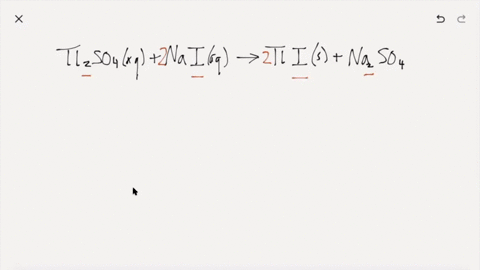 Tl₂SO₄(aq) + 2NaI(aq) → 2TlI(s) + Na₂SO₄